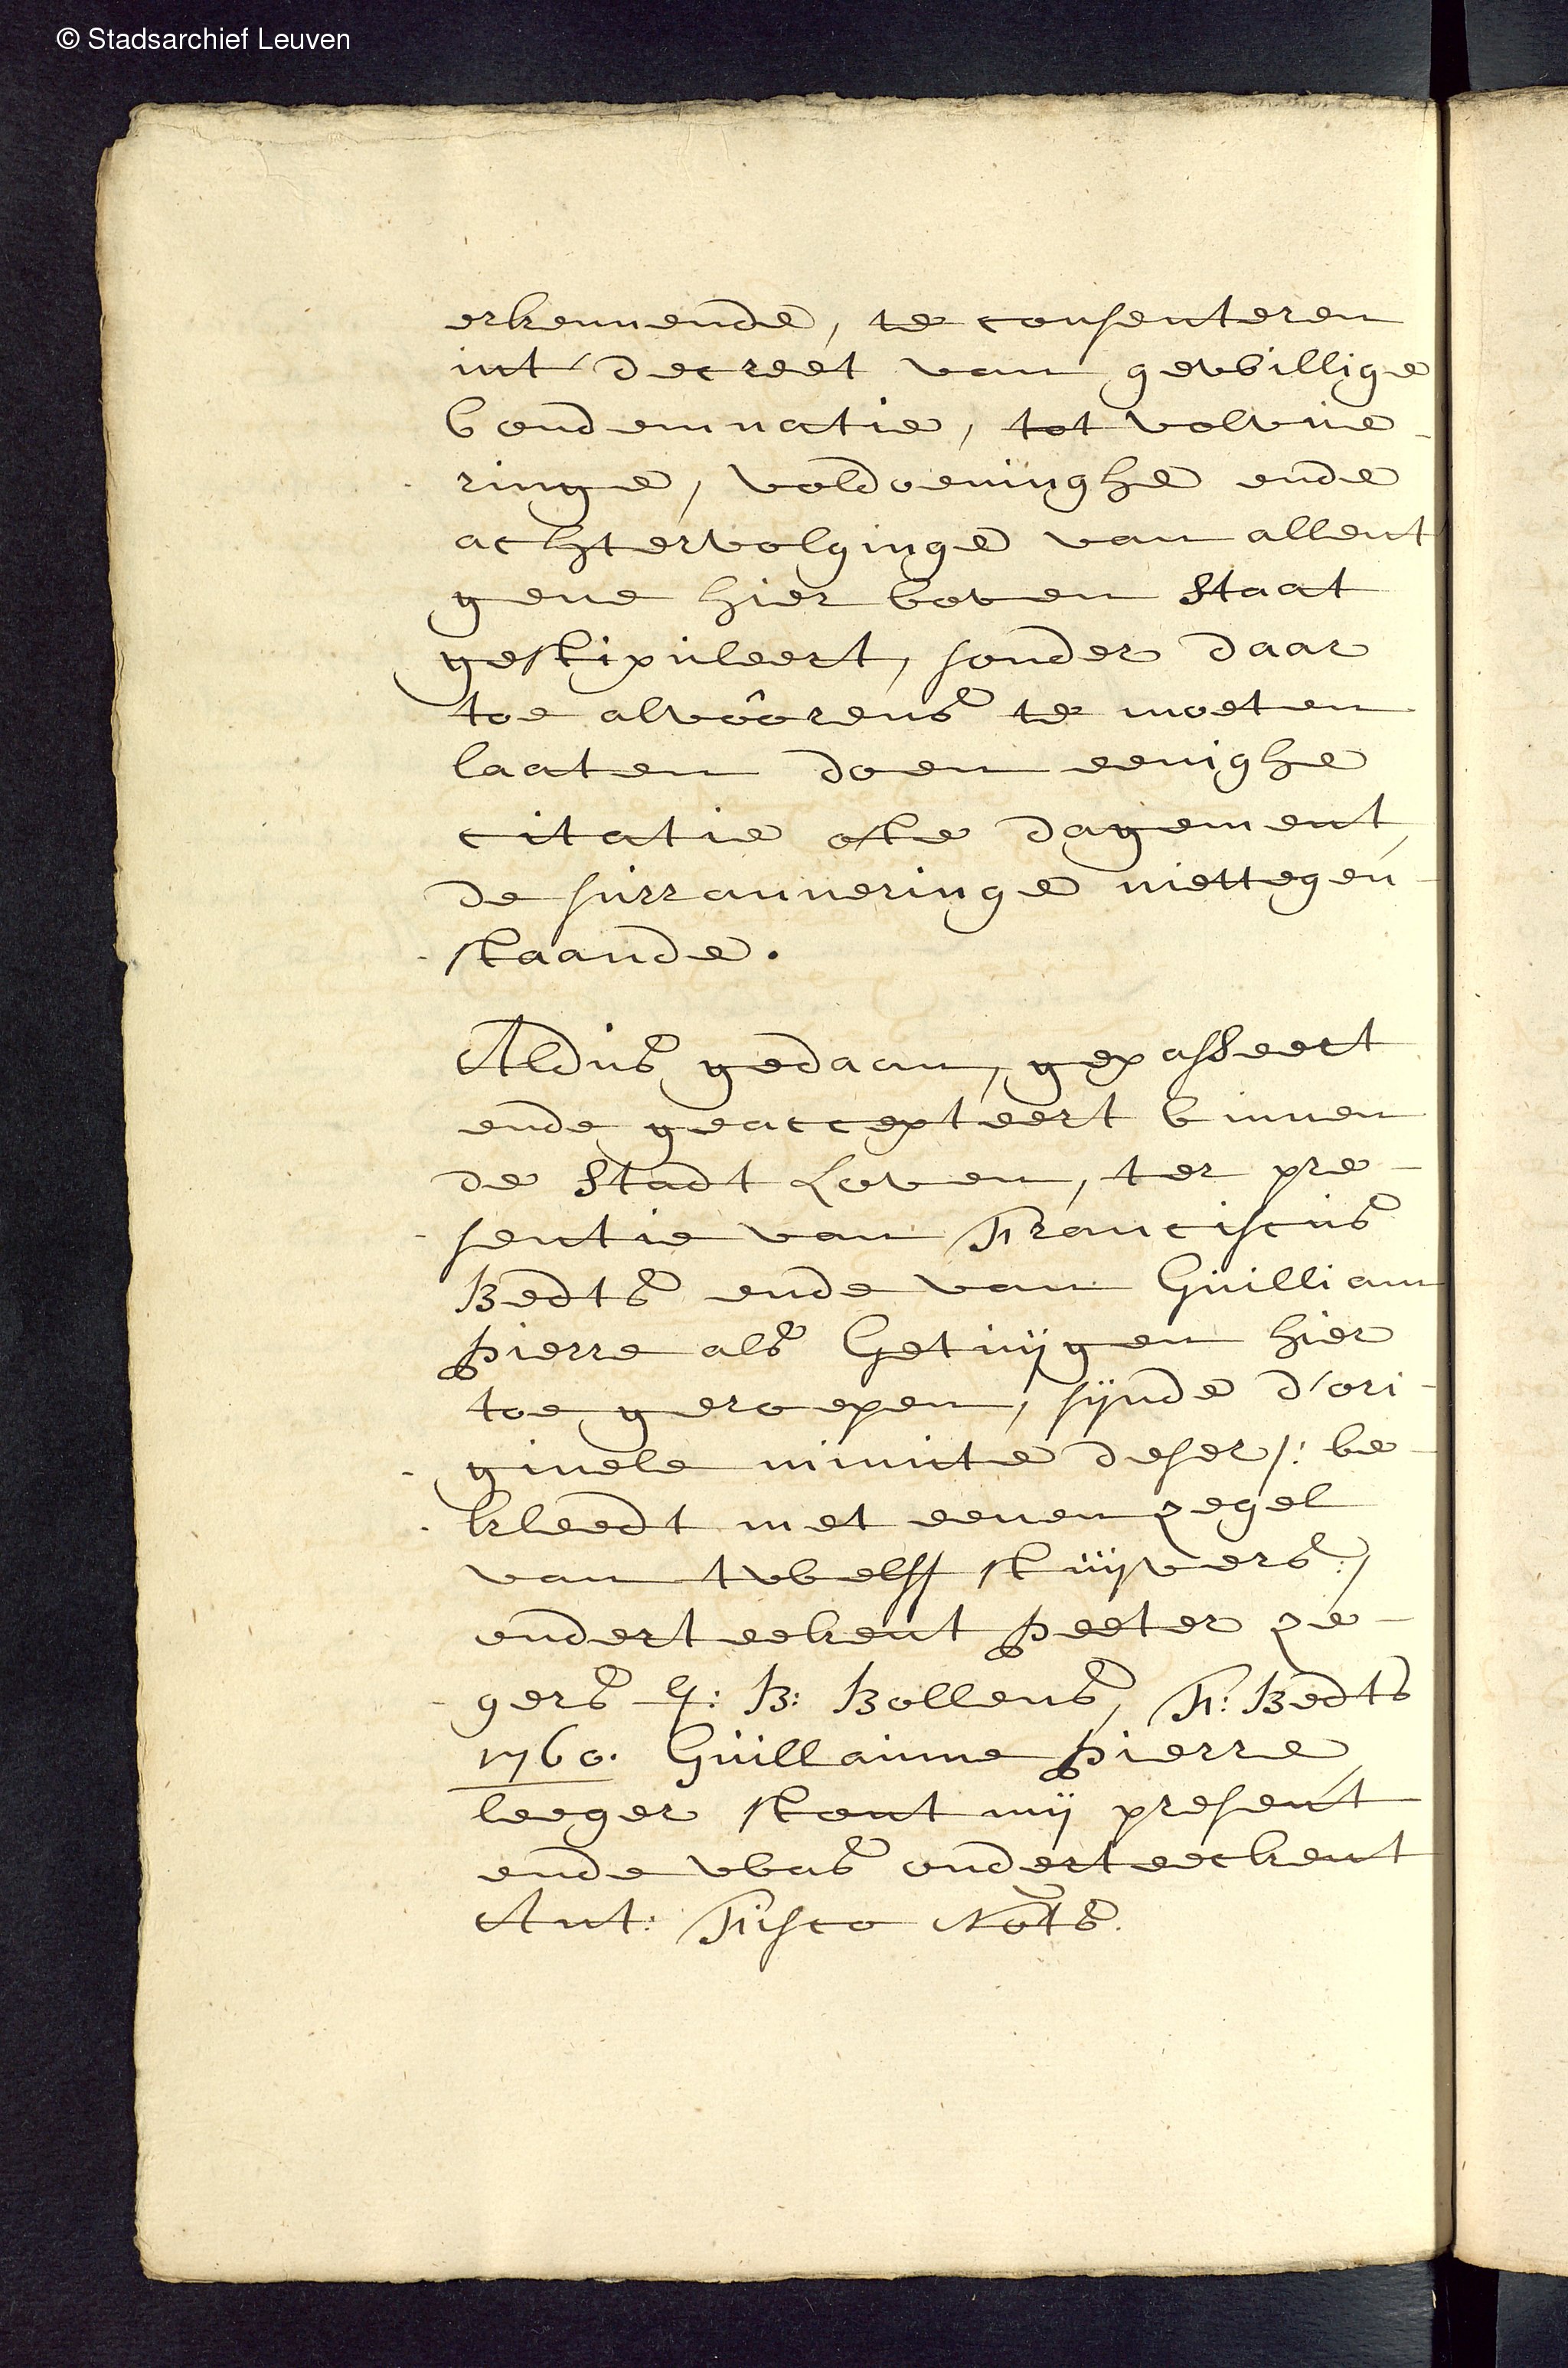 © Stadsarchief Leuven
erkennende, te consenteren
int' decreet van gewillige
Condemnatie, tot volvue-
ringe, voldoeninghe ende
achtervolginge van allent
gene hier boven staat
gestipuleert, sonder daar
toe alvôorens te moeten
laaten doen eenighe
citatie ofte dagement,
de surranneringe niettegen-
staande.
Aldus gedaan, gepasseert
ende geaccepteert binnen
de Stadt Loven, ter pre-
sentie van Franciscus
Bedts ende van Guilliam
Pierre als Getuijgen hier
toe geroepen, sijnde d'ori-
ginele minute deser /: be-
kleedt met eenen zegel
van twelff stuijvers :/
onderteekent Peeter ze-
gers G: B: Bollens, F: Bedts
1760. Guillaume Pierre,
leeger stont mij present
ende was onderteeckent
Ant: Fisco Nots.